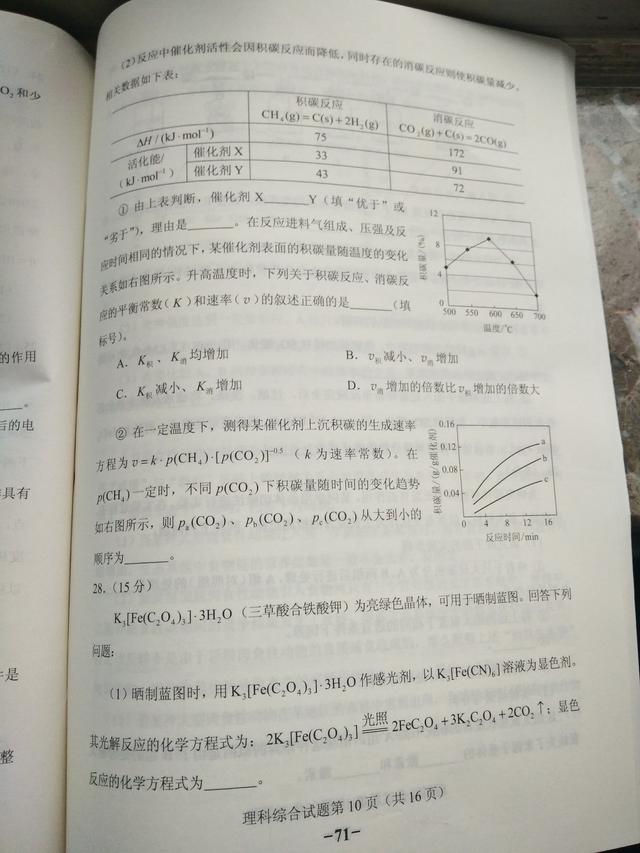 O₂ 和少
的作用
后的电
样具有
件是
整
(2)反应中催化剂活性会因积碳反应而降低，同时存在的消碳反应则使积碳量减少。
相关数据如下表：
积碳反应
CH₄(g)=C(s)+2H₂(g)
消碳反应
CO₂(g)+C(s)=2CO(g)
ΔH/(kJ·mol⁻¹) 75 172
活化能/
(kJ·mol⁻¹)
催化剂 X 33 91
催化剂 Y 43 72
① 由上表判断，催化剂 X______Y（填“优于”或
“劣于”），理由是______。在反应进料气组成、压强及反
应时间相同的情况下，某催化剂表面的积碳量随温度的变化
关系如右图所示。升高温度时，下列关于积碳反应、消碳反
应的平衡常数（K）和速率（v）的叙述正确的是______（填
标号）。
积碳量/(%)
12
8
4
0
500 550 600 650 700
温度/℃
A．K积、K消均增加 B．v积减小、v消增加
C．K积减小、K消增加 D．v消增加的倍数比v积增加的倍数大
② 在一定温度下，测得某催化剂上沉积碳的生成速率
方程为 v=k·p(CH₄)·[p(CO₂)]⁻⁰·⁵（k 为速率常数）。在
p(CH₄)一定时，不同 p(CO₂)下积碳量随时间的变化趋势
如右图所示，则 pa(CO₂)、pb(CO₂)、pc(CO₂)从大到小的
顺序为______。
积碳量/(g/g催化剂)
0.16
0.12
0.08
0.04
a
b
c
0 4 8 12 16
反应时间/min
28.（15 分）
K₃[Fe(C₂O₄)₃]·3H₂O（三草酸合铁酸钾）为亮绿色晶体，可用于晒制蓝图。回答下列
问题：
(1) 晒制蓝图时，用 K₃[Fe(C₂O₄)₃]·3H₂O 作感光剂，以 K₃[Fe(CN)₆]溶液为显色剂。
其光解反应的化学方程式为：2K₃[Fe(C₂O₄)₃] 光照 = 2FeC₂O₄+3K₂C₂O₄+2CO₂↑；显色
反应的化学方程式为______。
理科综合试题第 10 页（共 16 页）
-71-